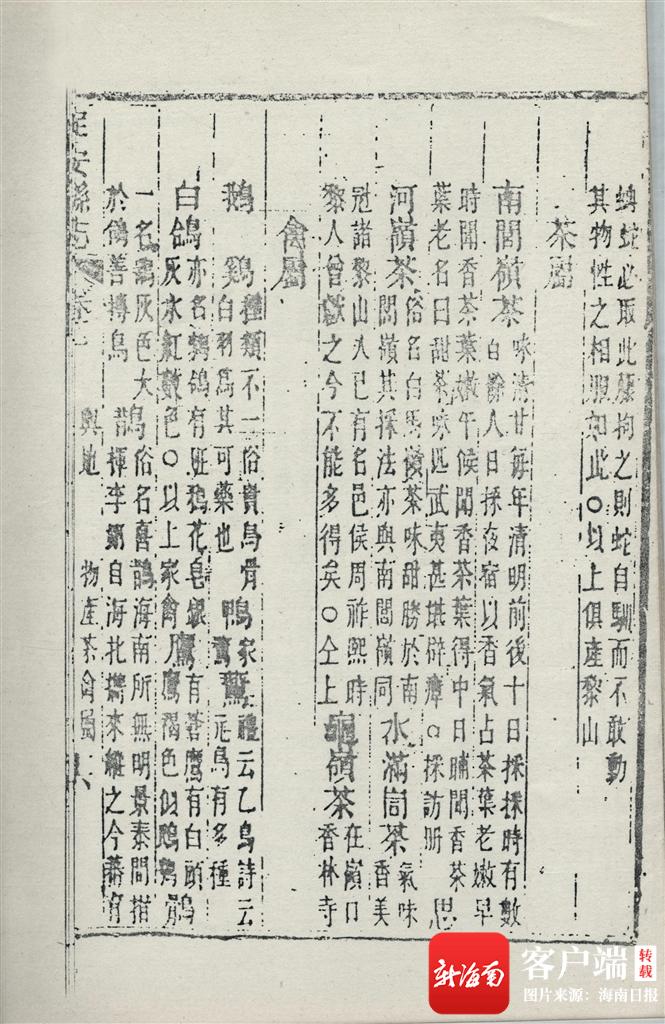 蚺蛇必取此藤拘之則蛇自馴而不敢動
其物性之相服如此○以上俱產黎山
茶屬
南閭嶺茶味清甘每年清明前後十日採採時有數
白黎人日採夜宿以香氣占茶葉老嫩早
時聞香茶葉嫩午候聞香茶葉得中日晡聞香茶
葉老名曰甜茶味匹武夷甚堪辟瘴○採訪册
思河嶺茶俗名白馬嶺茶味甜勝於南
閭嶺其採法亦與南閭嶺同
水滿峝茶氣味香美
冠諸黎山人已有名邑侯周祚熙時
黎人曾獻之今不能多得矣○仝上
龜嶺茶在嶺口香林寺
禽屬
鵝
鷄種類不一俗賣烏骨
白羽爲其可藥也
鴨家鶩
鶩禮云乙鳥詩云
鳥有多種
白鴿亦名鵓鴿有斑鴉花皂銀
灰水紅數色○以上家禽
鷹有蒼鷹有白頭
鷹褐色似鴟
一名灰色大
於鴿善摶鳥
鵲俗名喜鵲海南所無明景泰間指
揮李翊自海北攜來縱之今蕃育
定安縣志
卷一
輿地
物產茶禽屬
新海南
客户端
转载
图片来源：海南日报